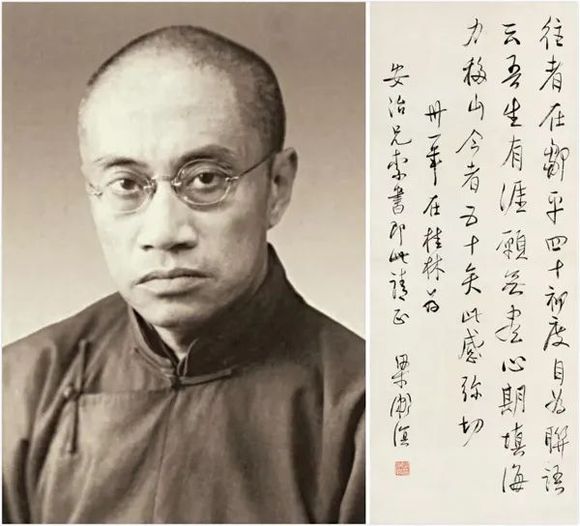 往者在鄒平四十初度自為聯語
云吾生有涯願無盡心期填海
力移山今者五十矣此感彌切
卅一年在桂林為
安治兄索書即此請正 梁漱溟